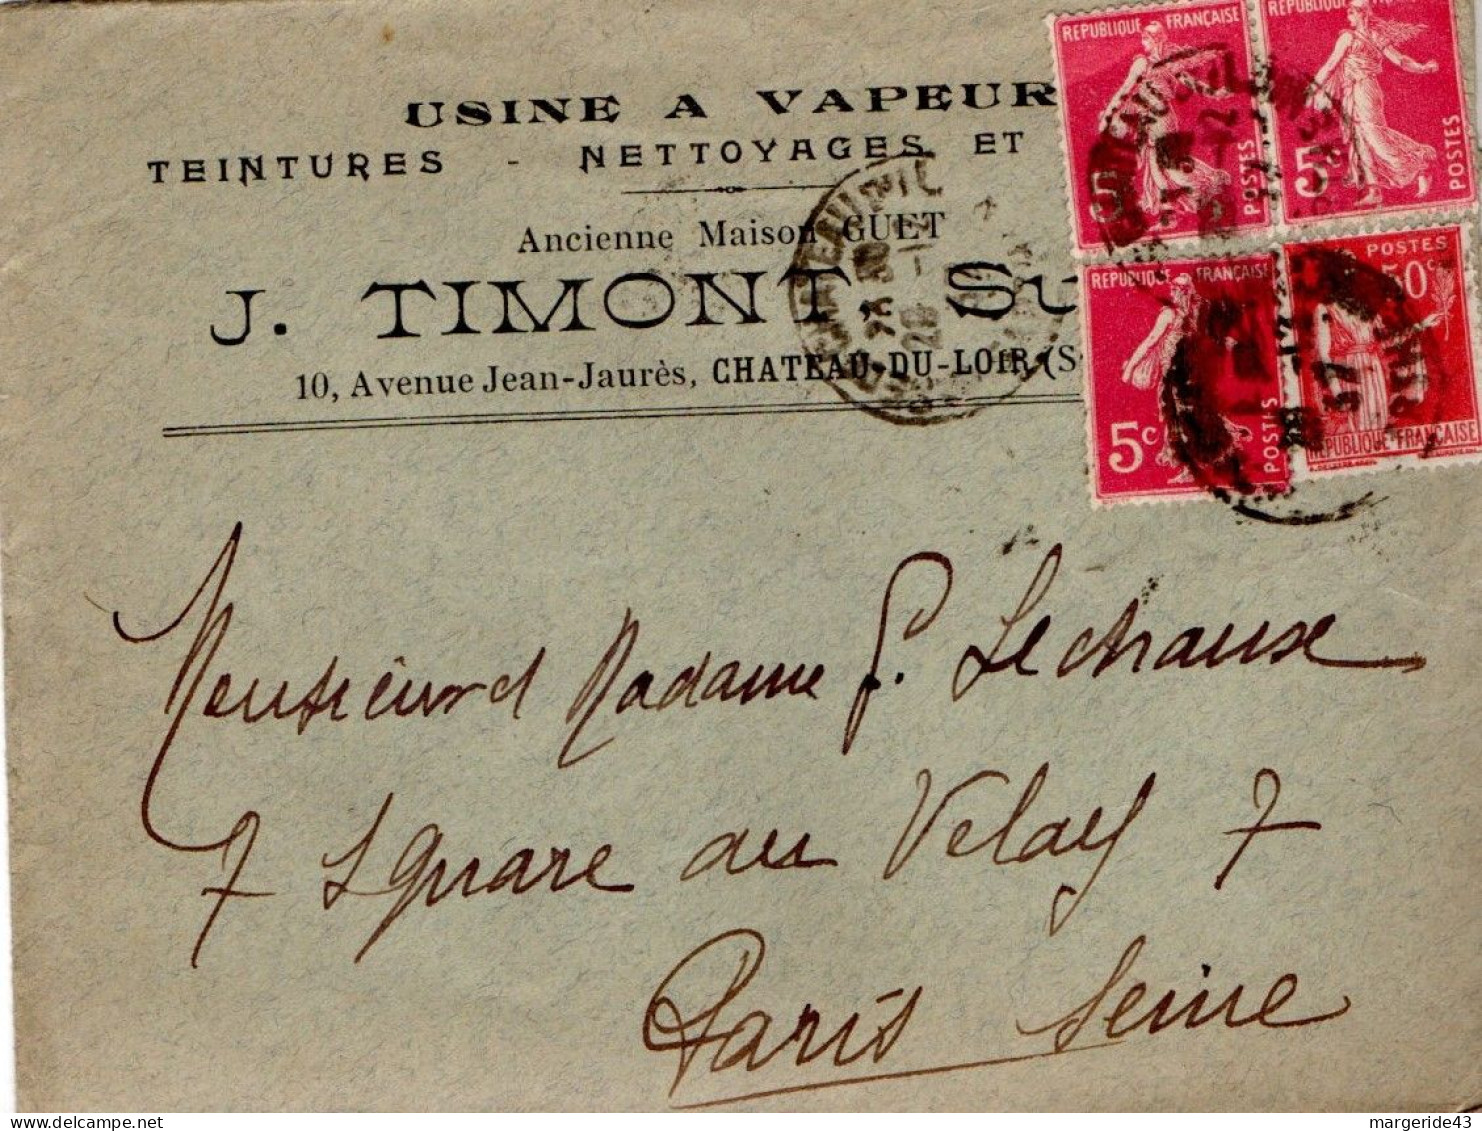 USINE A VAPEUR
TEINTURES - NETTOYAGES ET
Ancienne Maison GUET
J. TIMONT, Su
10, Avenue Jean-Jaurès, CHATEAU-DU-LOIR (S
REPUBLIQUE FRANÇAISE
POSTES
5
REPUBLIQUE FRANÇAISE
POSTES
5c
REPUBLIQUE FRANÇAISE
POSTES
5c
POSTES
50c
REPUBLIQUE FRANÇAISE
37
Monsieur d Madame P. Lechaux
7 Square au Velay 7
Paris Seine
margeride43